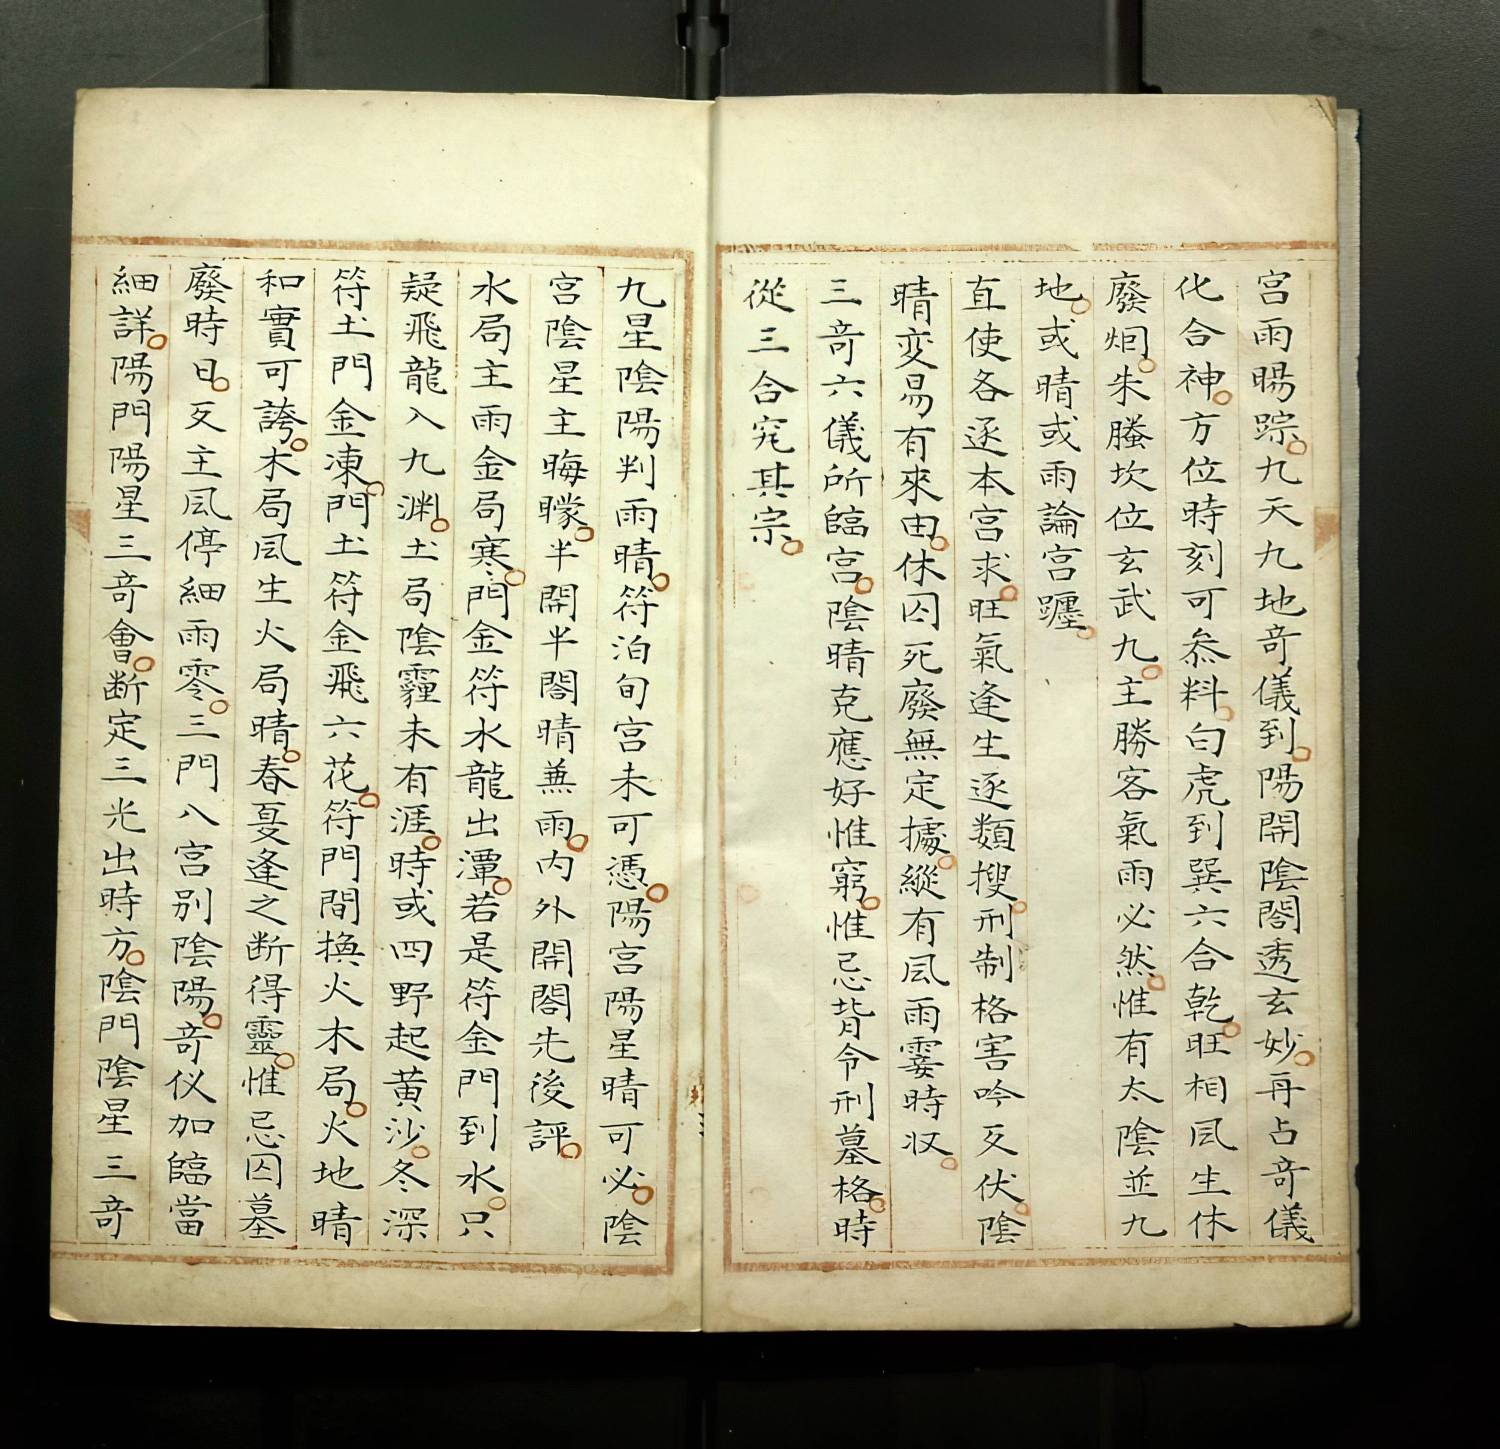 宫雨暘踪。九天九地竒儀到。陽開陰閤透玄妙。再占竒儀
化合神。方位時刻可叅料。白虎到巽六合乾。旺相風生休
廢炯。朱螣坎位玄武九。主勝客氣雨必然。惟有太陰並九
地。或晴或雨論宫躔。
直使各逐本宫求。旺氣逢生逐類搜。刑制格害吟反伏。陰
晴变易有來由。休囚死廢無定據。縱有風雨霎時収。
三竒六儀所臨宫。陰晴克應好惟窮。惟忌背令刑墓格。時
從三合究其宗。
九星陰陽判雨晴。符泊旬宫未可憑。陽宫陽星晴可必。陰
宫陰星主晦矇。半開半閤晴兼雨。内外開閤先後評。
水局主雨金局寒。門金符水龍出潭。若是符金門到水。只
疑飛龍入九渊。土局陰霾未有涯。時或四野起黄沙。冬深
符土門金凍。門土符金飛六花。符門間換火木局。火地晴
和實可誇。木局風生火局晴。春夏逢之断得靈。惟忌囚墓
廢時日。反主風停細雨零。三門八宫别陰陽。竒仪加臨當
細詳。陽門陽星三竒會。断定三光出時方。陰門陰星三竒